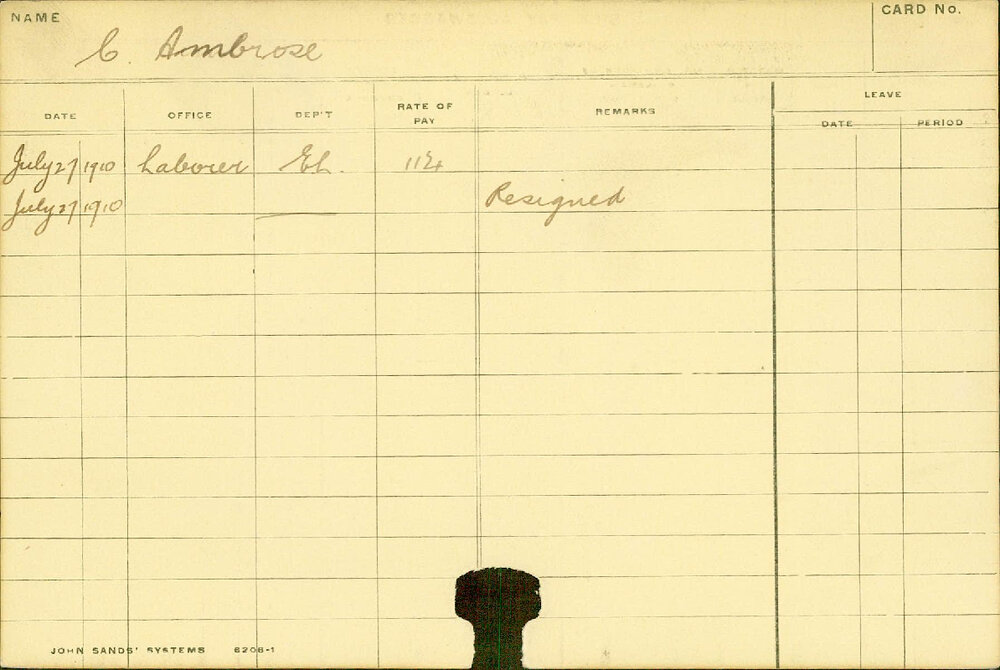 NAME C. Ambrose CARD No.
DATE OFFICE DEP'T RATE OF PAY REMARKS LEAVE
DATE PERIOD
July 27 1910 Laborer EL.
July 27 1910 Resigned
JOHN SANDS' SYSTEMS 6206-1